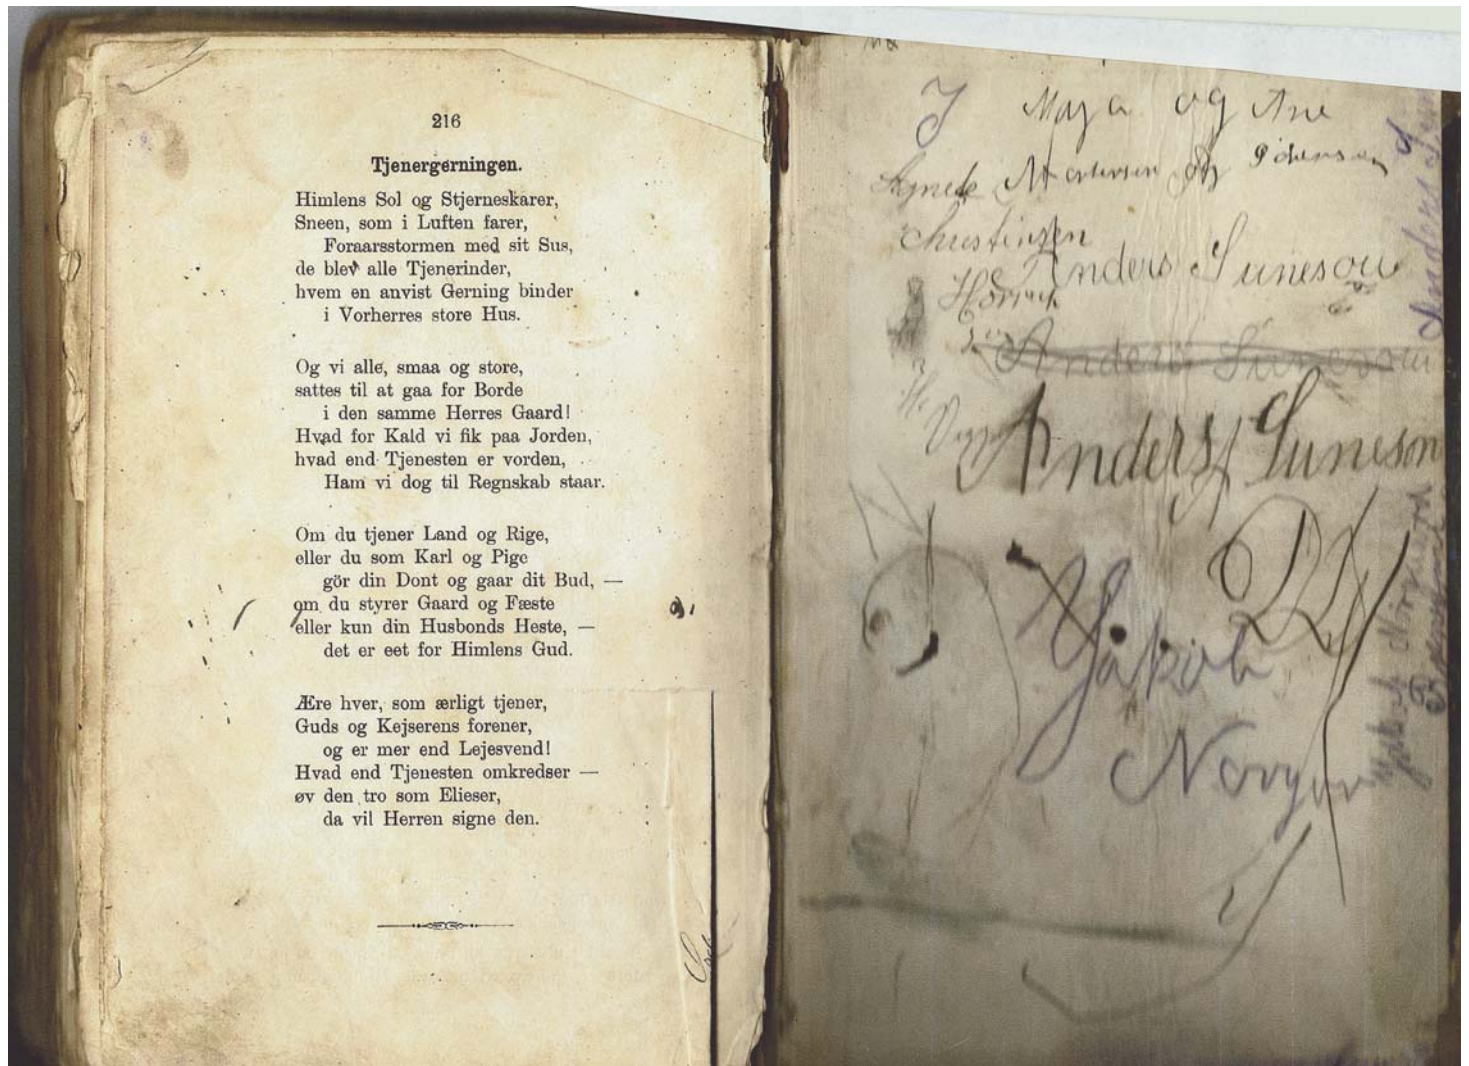 216
Tjenergerningen.
Himlens Sol og Stjerneskarer,
Sneen, som i Luften farer,
Foraarsstormen med sit Sus,
de blev alle Tjenerinder,
hvem en anvist Gerning binder
i Vorherres store Hus.
Og vi alle, smaa og store,
sattes til at gaa for Borde
i den samme Herres Gaard!
Hvad for Kald vi fik paa Jorden,
hvad end Tjenesten er vorden,
Ham vi dog til Regnskab staar.
Om du tjener Land og Rige,
eller du som Karl og Pige
gör din Dont og gaar dit Bud, —
om du styrer Gaard og Fæste
eller kun din Husbonds Heste, —
det er eet for Himlens Gud.
Ære hver, som ærligt tjener,
Guds og Kejserens forener,
og er mer end Lejesvend!
Hvad end Tjenesten omkredser —
øv den tro som Elieser,
da vil Herren signe den.
J Maja og Ane
Agnete Mortensen og
Christinsen
Anders Suneson
Anders Suneson
Anders Suneson
Jakob